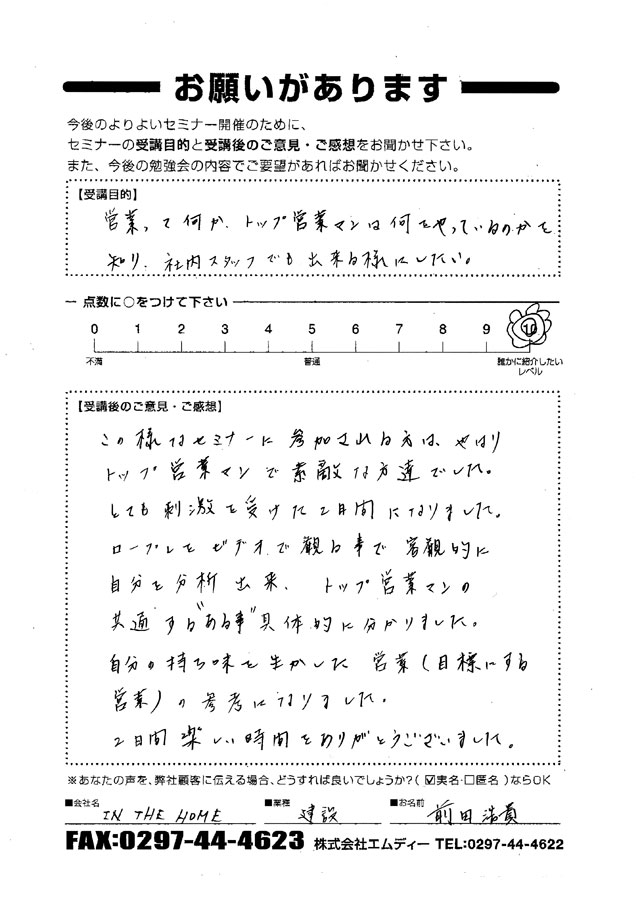 お願いがあります
今後のよりよいセミナー開催のために、
セミナーの受講目的と受講後のご意見・ご感想をお聞かせ下さい。
また、今後の勉強会の内容でご要望があればお聞かせください。
【受講目的】
営業って何か、トップ営業マンは何をやっているのかを
知り、社内スタッフでも出来る様にしたい。
点数に○をつけて下さい
0 1 2 3 4 5 6 7 8 9 10
不満 普通 誰かに紹介したい
レベル
【受講後のご意見・ご感想】
この様なセミナーに参加される方は、やはり
トップ営業マンで素敵な方達でした。
とても刺激を受けた2日間になりました。
ロープレをビデオで観る事で客観的に
自分を分析出来、トップ営業マンの
共通する"ある事"具体的に分かりました。
自分の持ち味を生かした営業(目標にする
営業)の参考になりました。
2日間楽しい時間をありがとうございました。
※あなたの声を、弊社顧客に伝える場合、どうすれば良いでしょうか?(☑実名・□匿名)ならOK
■会社名 IN THE HOME ■業種 建設 ■お名前 前田浩貴
FAX:0297-44-4623 株式会社エムディー TEL:0297-44-4622